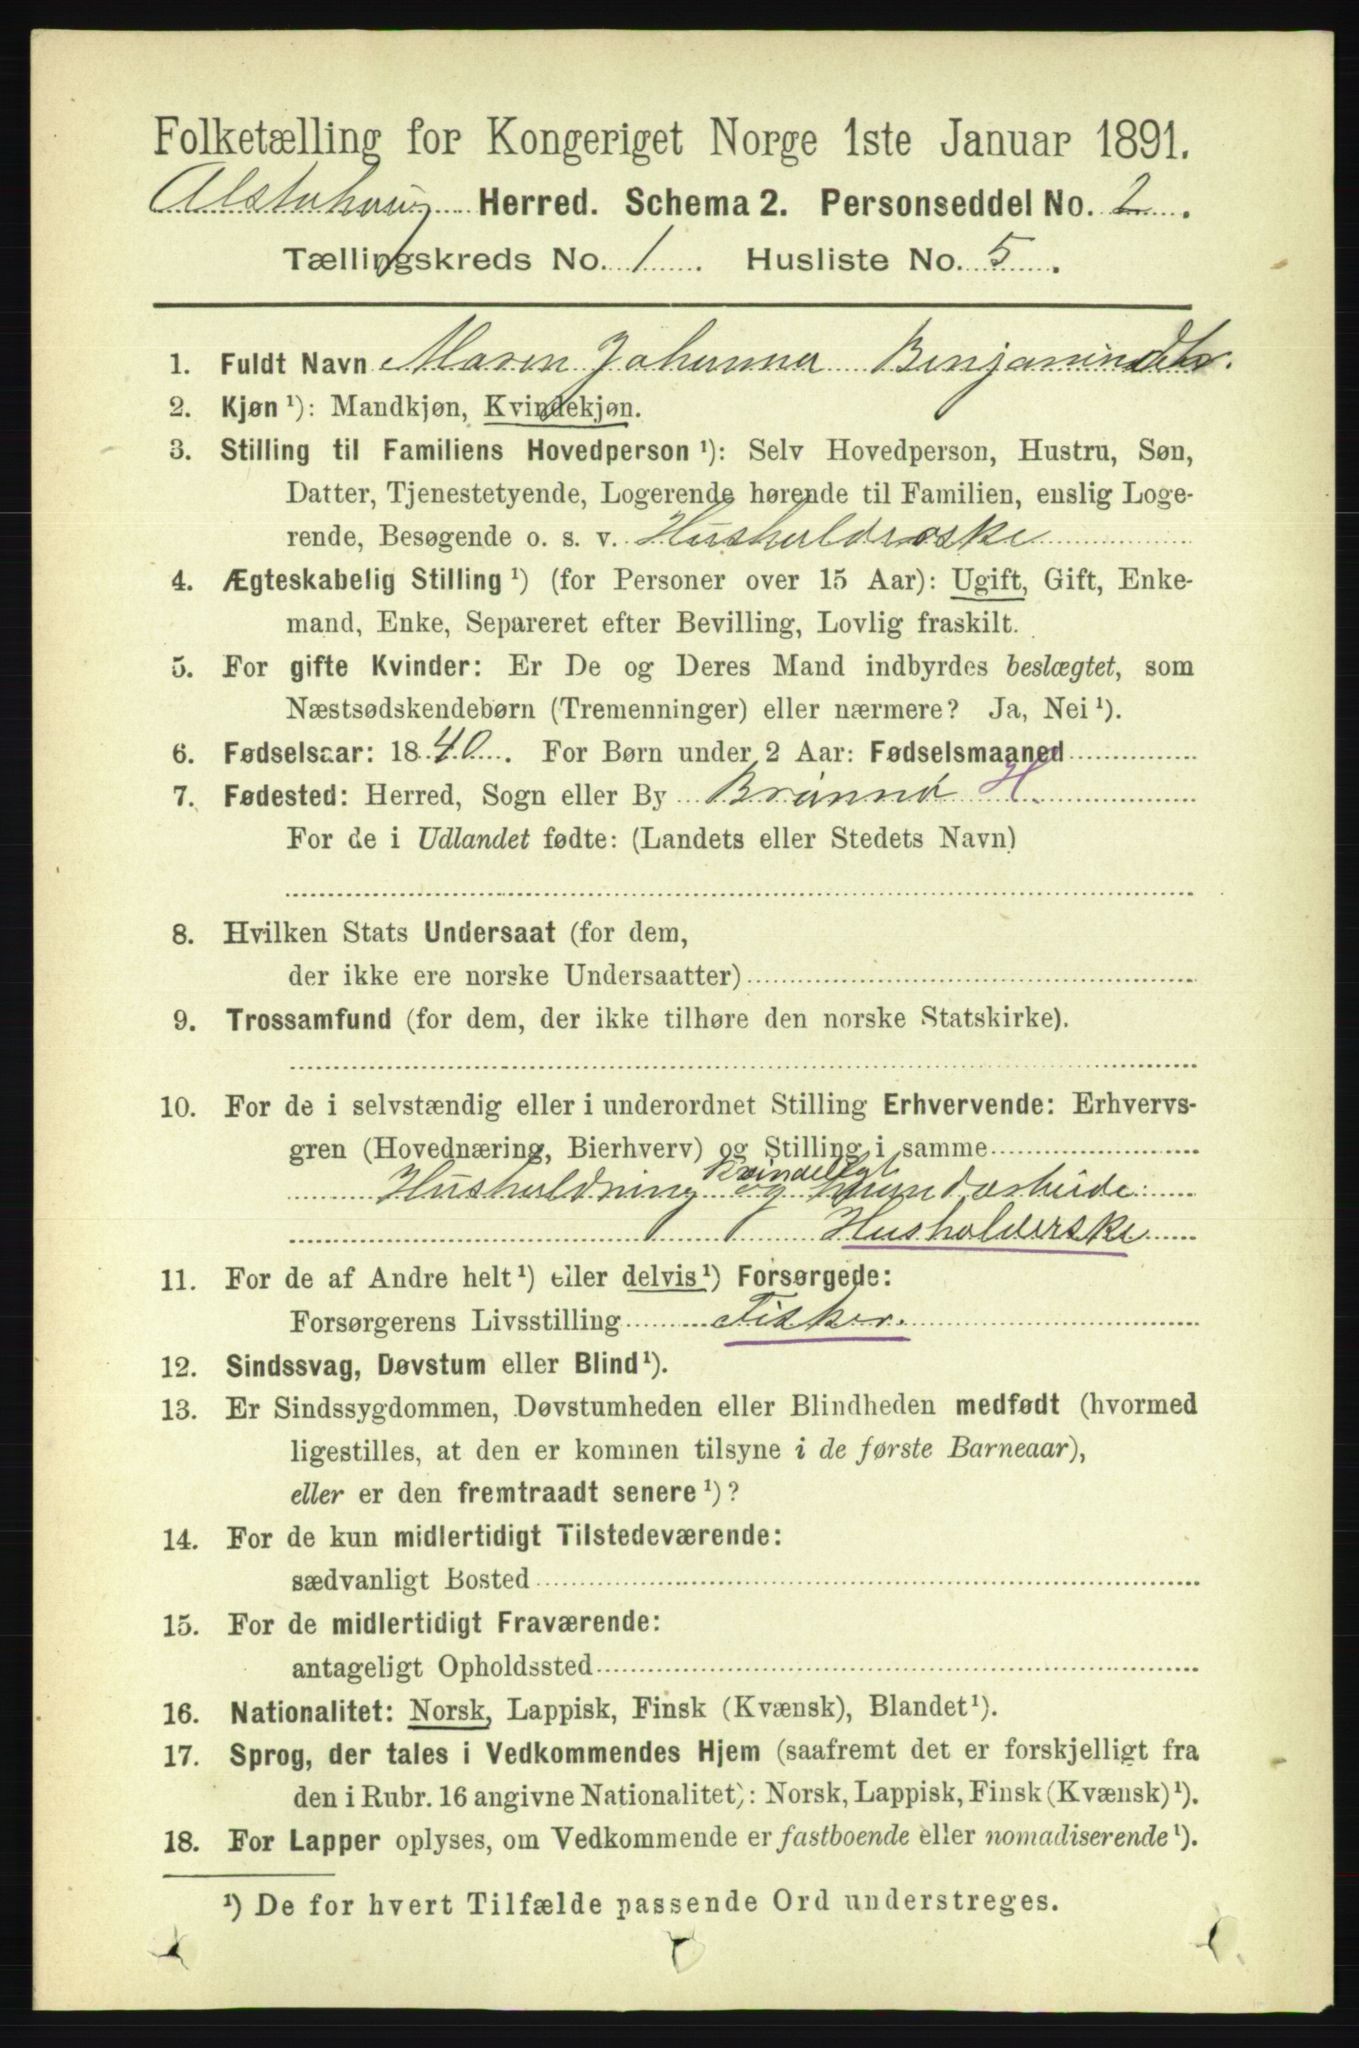 Folketælling for Kongeriget Norge 1ste Januar 1891.
Alstahoug Herred. Schema 2. Personseddel No. 2.
Tællingskreds No. 1. Husliste No. 5.
1. Fuldt Navn Maren Johanna Benjamindtr.
2. Kjøn ¹): Mandkjøn, Kvindekjøn.
3. Stilling til Familiens Hovedperson ¹): Selv Hovedperson, Hustru, Søn,
Datter, Tjenestetyende, Logerende hørende til Familien, enslig Loge-
rende, Besøgende o. s. v. Husholdrske
4. Ægteskabelig Stilling ¹) (for Personer over 15 Aar): Ugift, Gift, Enke-
mand, Enke, Separeret efter Bevilling, Lovlig fraskilt.
5. For gifte Kvinder: Er De og Deres Mand indbyrdes beslægtet, som
Næstsødskendebørn (Tremenninger) eller nærmere? Ja, Nei ¹).
6. Fødselsaar: 1840. For Børn under 2 Aar: Fødselsmaaned
7. Fødested: Herred, Sogn eller By Brønnø H.
For de i Udlandet fødte: (Landets eller Stedets Navn)
8. Hvilken Stats Undersaat (for dem,
der ikke ere norske Undersaatter)
9. Trossamfund (for dem, der ikke tilhøre den norske Statskirke).
10. For de i selvstændig eller i underordnet Stilling Erhvervende: Erhvervs-
gren (Hovednæring, Bierhverv) og Stilling i samme
kvindeligt
Husholdning og haandarbeide
Husholderske
11. For de af Andre helt ¹) eller delvis ¹) Forsørgede:
Forsørgerens Livsstilling Fisker.
12. Sindssvag, Døvstum eller Blind ¹).
13. Er Sindssygdommen, Døvstumheden eller Blindheden medfødt (hvormed
ligestilles, at den er kommen tilsyne i de første Barneaar),
eller er den fremtraadt senere ¹)?
14. For de kun midlertidigt Tilstedeværende:
sædvanligt Bosted
15. For de midlertidigt Fraværende:
antageligt Opholdssted
16. Nationalitet: Norsk, Lappisk, Finsk (Kvænsk), Blandet ¹).
17. Sprog, der tales i Vedkommendes Hjem (saafremt det er forskjelligt fra
den i Rubr. 16 angivne Nationalitet): Norsk, Lappisk, Finsk (Kvænsk) ¹).
18. For Lapper oplyses, om Vedkommende er fastboende eller nomadiserende ¹).
¹) De for hvert Tilfælde passende Ord understreges.